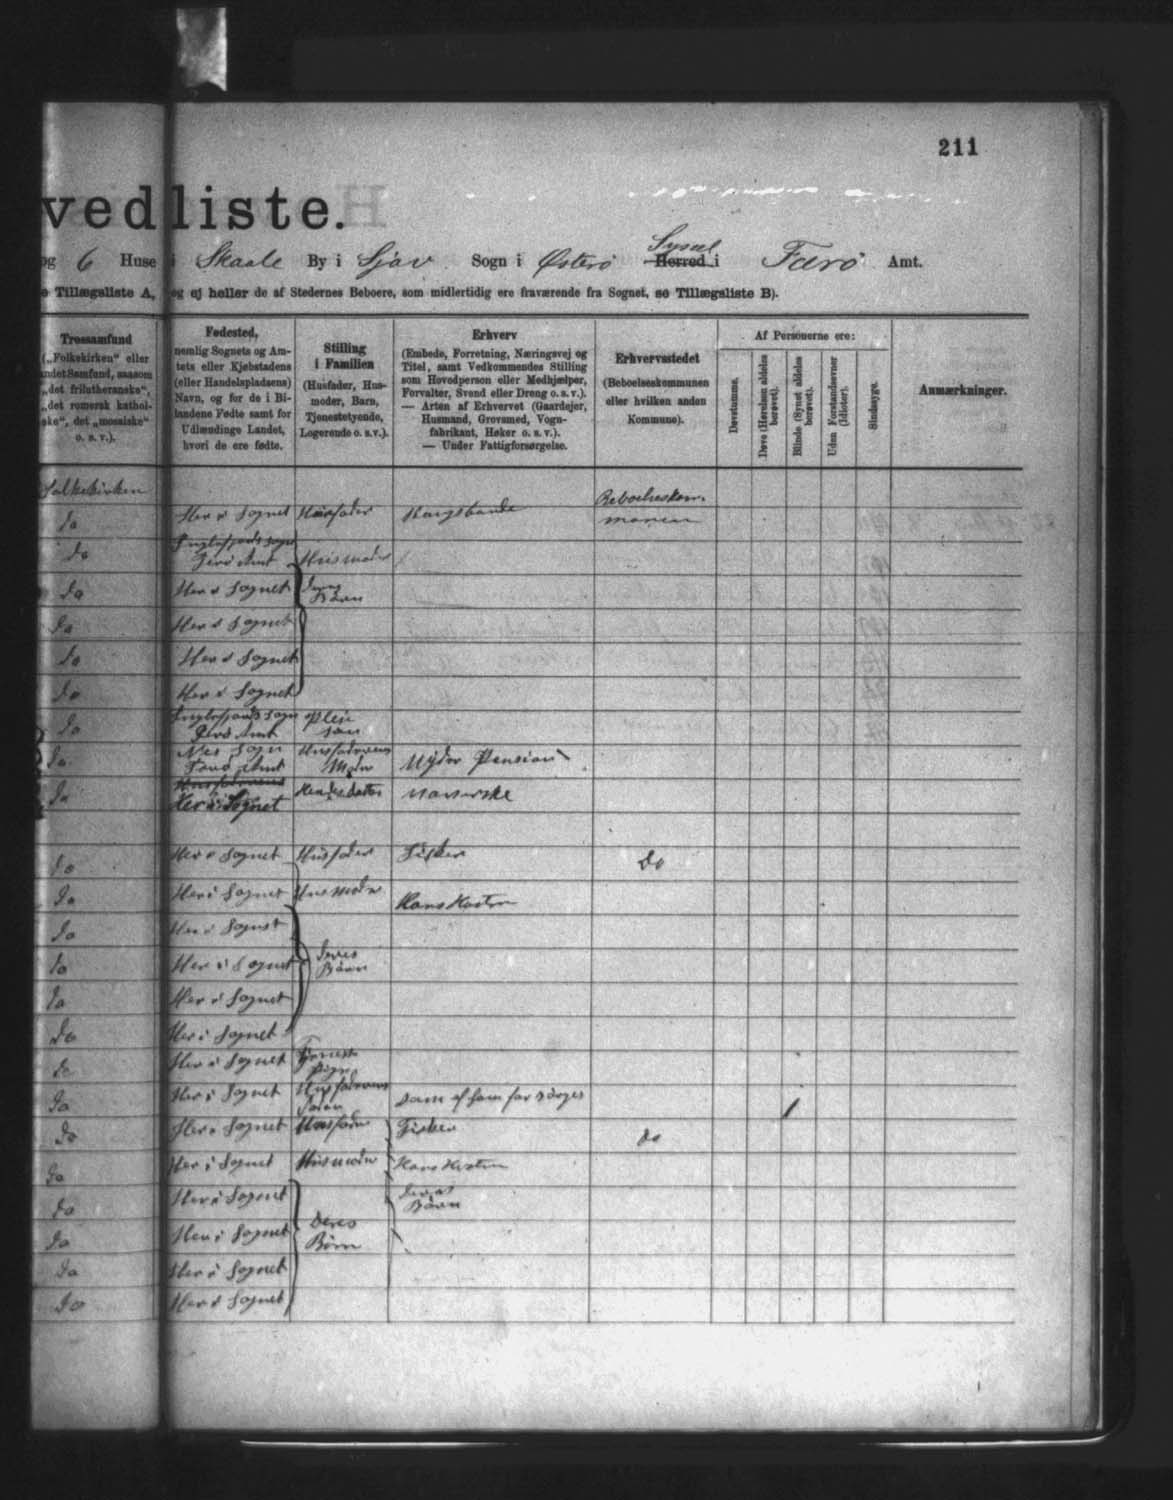 211
vedliste.
og 6 Huse i Skaale By i Sjov Sogn i Østerø Syssel Herred i Færø Amt.
e Tillægsliste A, og ej heller de af Stedernes Beboere, som midlertidig ere fraværende fra Sognet, se Tillægsliste B).
Trossamfund
(„Folkekirken“ eller
andet Samfund, saasom
„det frilutheranske“,
„det romersk kathol-
ske“, det „mosaiske“
o. s. v.).
Fødested,
nemlig Sognets og Am-
tets eller Kjøbstadens
(eller Handelspladsens)
Navn, og for de i Bi-
landene Fødte samt for
Udlændinge Landet,
hvori de ere fødte.
Stilling
i Familien
(Husfader, Hus-
moder, Barn,
Tjenestetyende,
Logerende o. s. v.).
Erhverv
(Embede, Forretning, Næringsvej og
Titel, samt Vedkommendes Stilling
som Hovedperson eller Medhjælper,
Forvalter, Svend eller Dreng o. s. v.).
— Arten af Erhvervet (Gaardejer,
Husmand, Grovsmed, Vogn-
fabrikant, Høker o. s. v.).
— Under Fattigforsørgelse.
Erhvervsstedet
(Beboelseskommunen
eller hvilken anden
Kommune).
Af Personerne ere:
Døvstumme.
Døve (Hørelsen aldeles
berøvet).
Blinde (Synet aldeles
berøvet).
Uden Forstandsevner
(Idioter).
Sindssyge.
Anmærkninger.
Folkekirken Beboelseskom-
do Her i Sognet Husfader Kongsbonde munen
do Sogn
Færø Amt Husmoder
do Her i Sognet deres
Børn
do Her i Sognet
do Her i Sognet
do Her i Sognet
do Sogn Pleie
Færø Amt søn
do Nes Sogn Husfaderens
Færø Amt Moder Nyder Pension
do Husfaderens
Her i Sognet Hendes datter
do Her i Sognet Husfader Fisker do
do Her i Sognet Husmoder Hans Hustru
do Her i Sognet
do Her i Sognet deres
Børn
do Her i Sognet
do Her i Sognet
do Her i Sognet Tjeneste
Pige
do Her i Sognet Husfaderens
som af ham forsørges
do Her i Sognet Husfader Fisker do
do Her i Sognet Husmoder Hans Hustru
do Her i Sognet deres
Børn
do Her i Sognet Deres
Børn
do Her i Sognet
do Her i Sognet